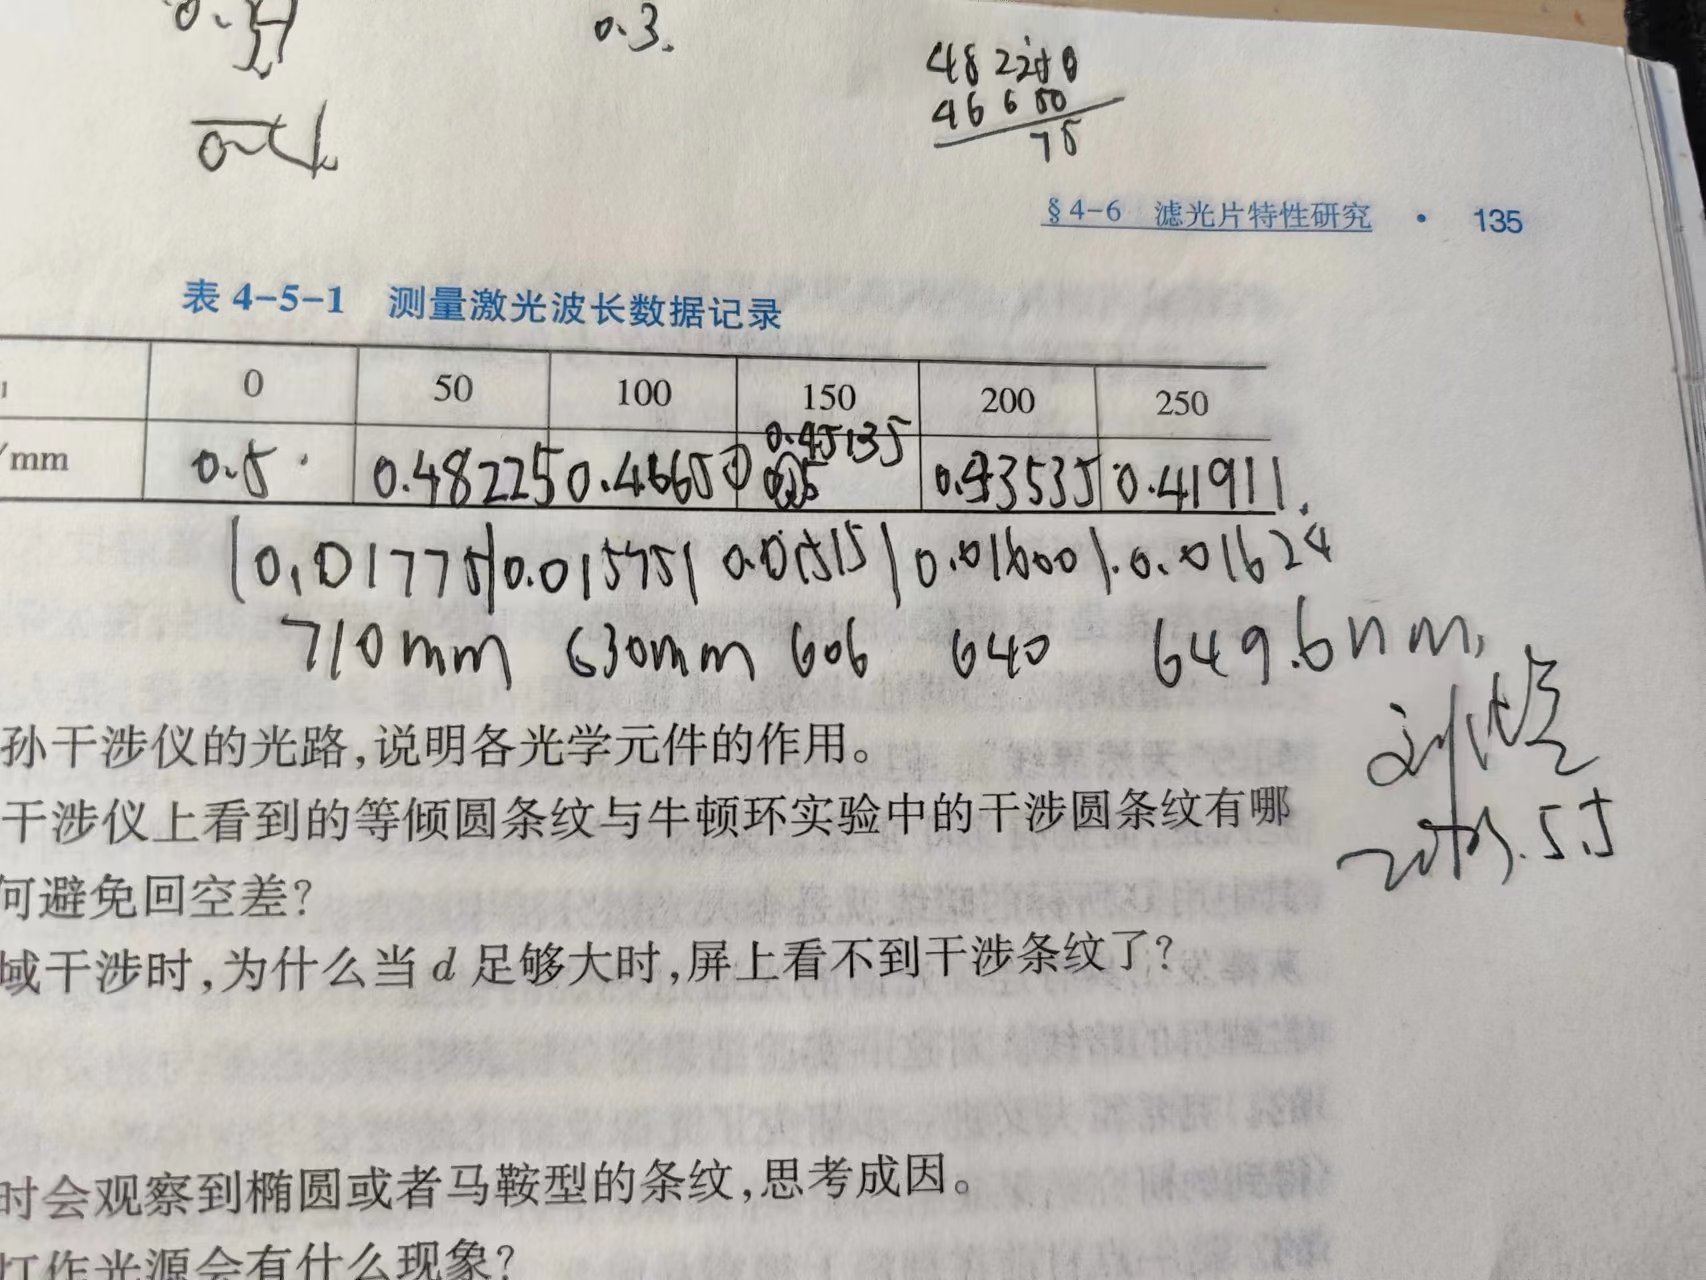 0.3.
482250
46650
75
§4-6 滤光片特性研究 · 135
表 4-5-1 测量激光波长数据记录
0 50 100 150 200 250
/mm 0.5 0.48225 0.46650 0.45135 0.43535 0.41911
0.01775 0.01575 0.01515 0.01600 0.01624
710mm 630mm 606 640 649.6nm
孙干涉仪的光路,说明各光学元件的作用。
干涉仪上看到的等倾圆条纹与牛顿环实验中的干涉圆条纹有哪
何避免回空差?
域干涉时,为什么当 d 足够大时,屏上看不到干涉条纹了?
时会观察到椭圆或者马鞍型的条纹,思考成因。
灯作光源会有什么现象?